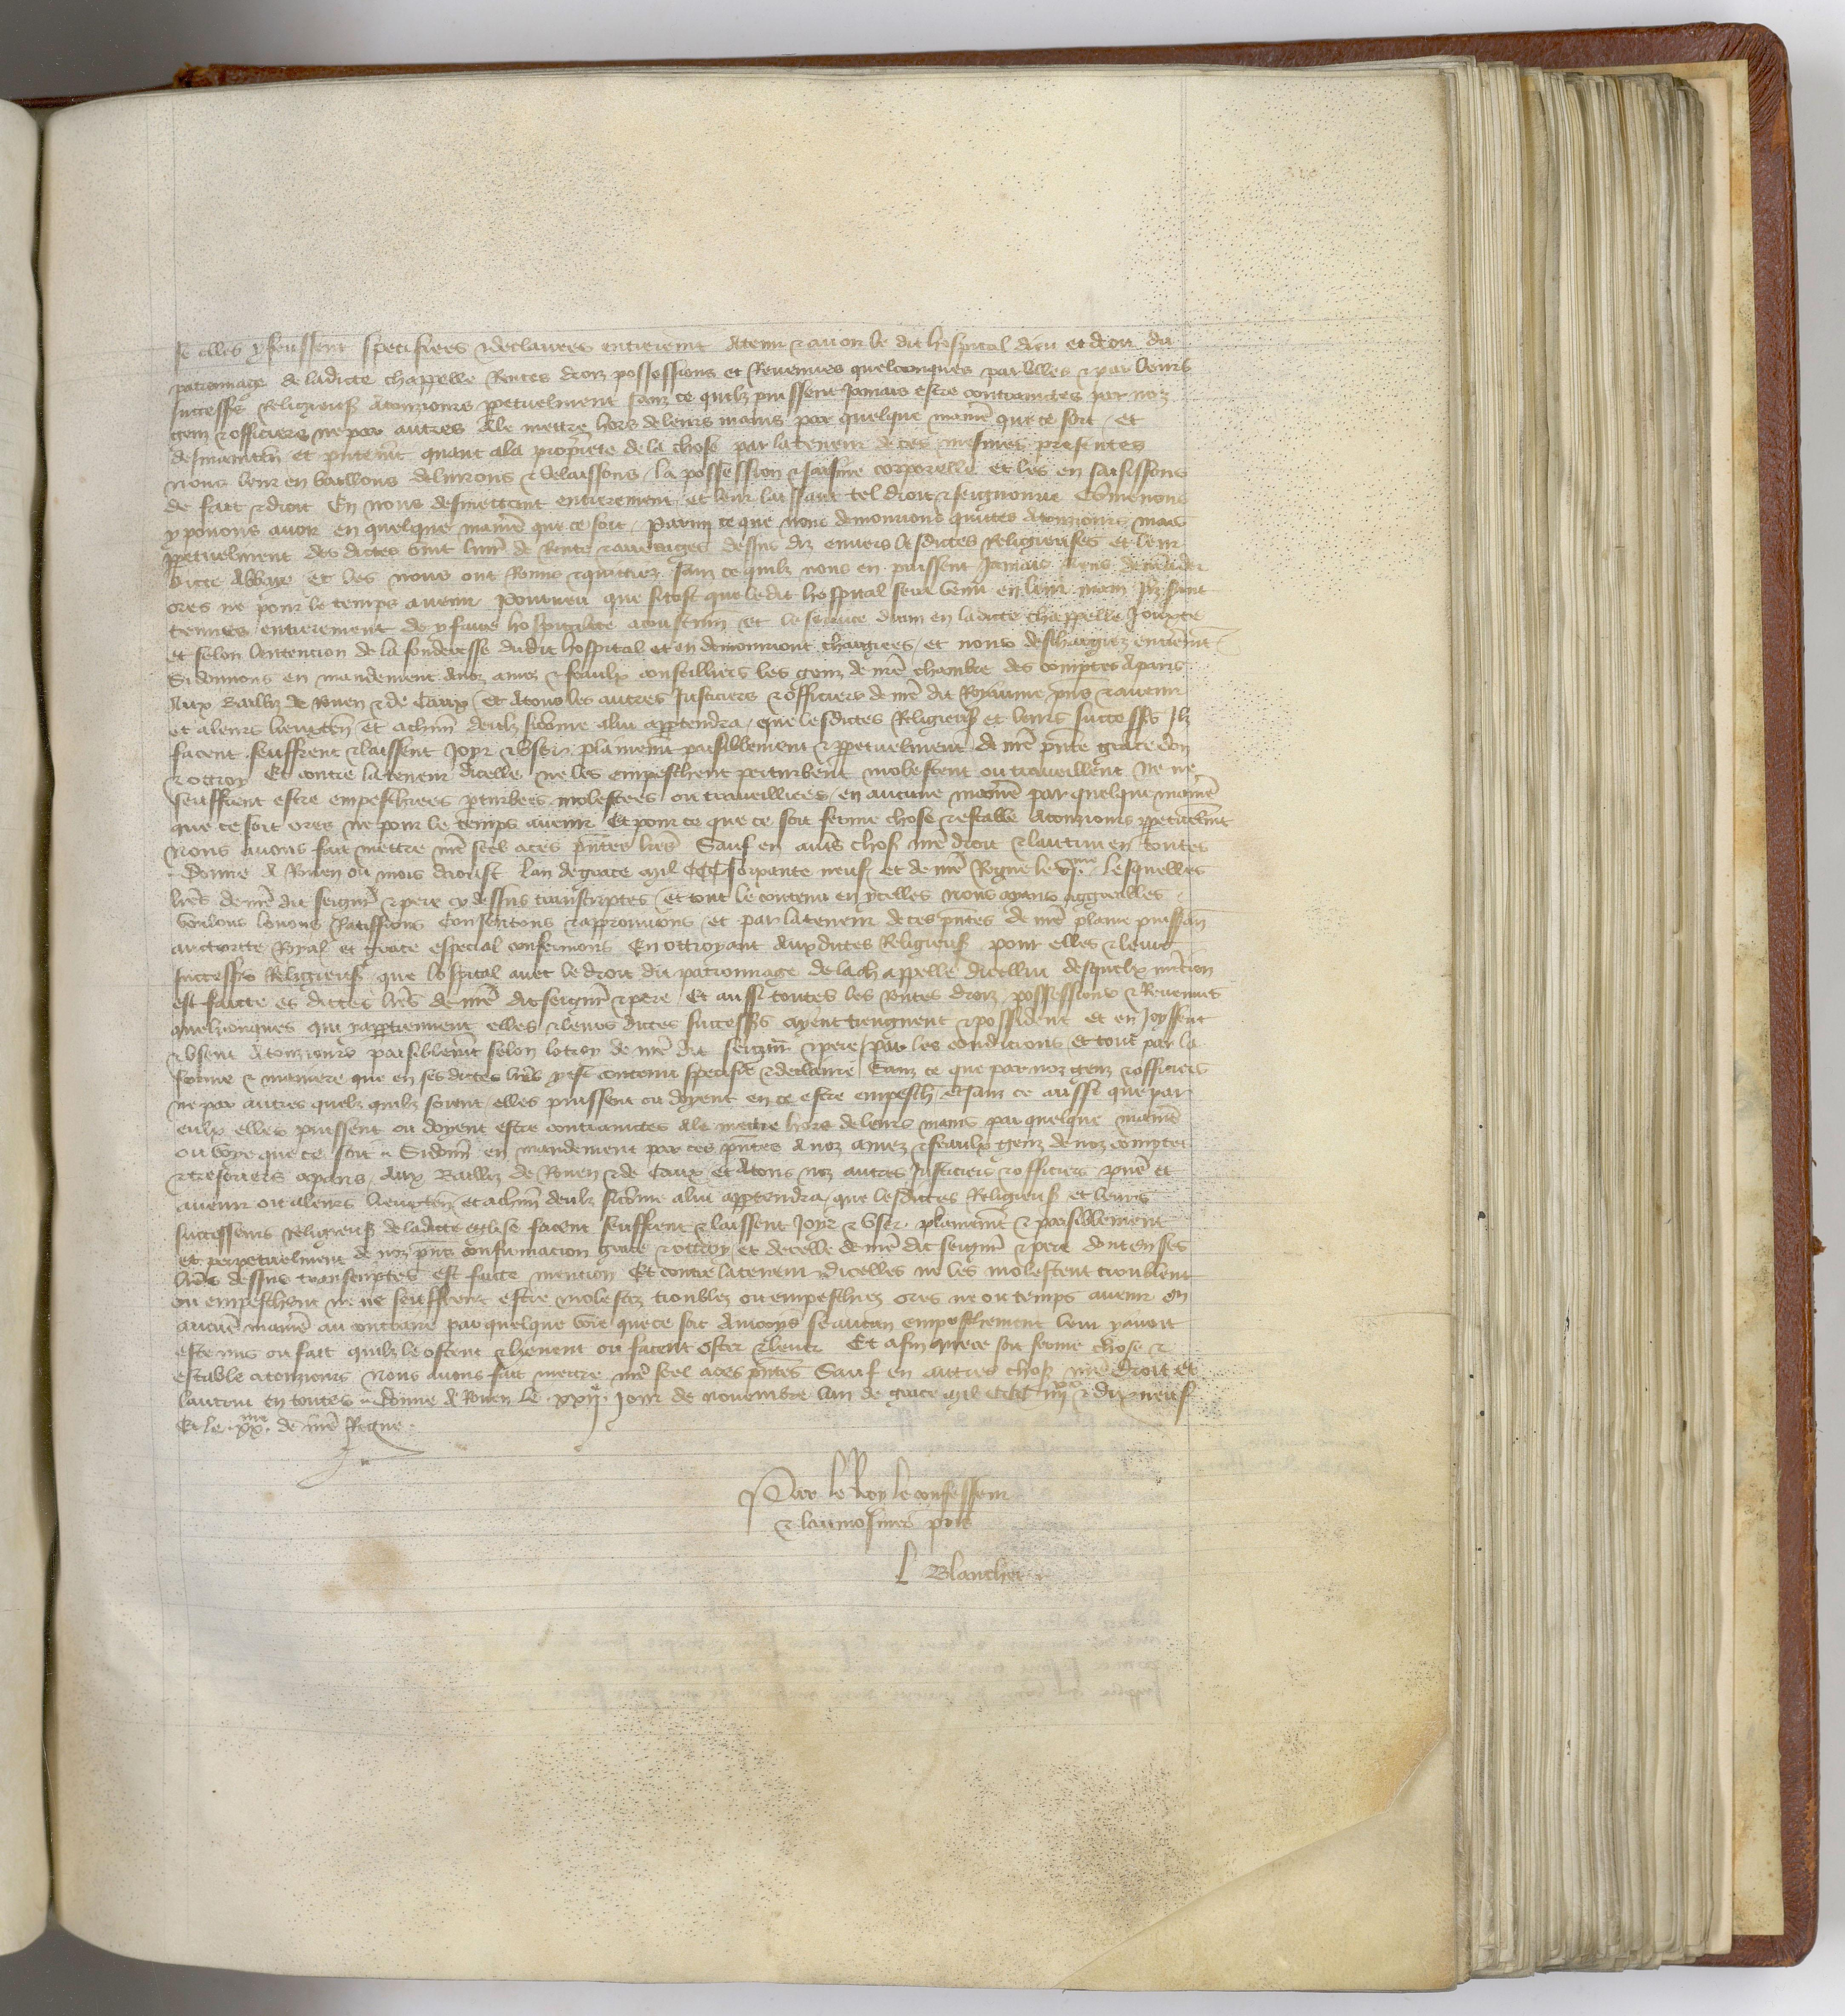 se elles y feussent specifiees & declairees entieremt A tenir & avoir le dit hospital dieu et droit du
patronnage de ladicte chappelle Rentes droiz possessions et Revenues quelconques par elles & par leurs
successrs Religieuses a touziours ppetuelment sanz ce quilz puissent Jamais estre contraintes par noz
genz & officiers ne par autres A le mettre hors de leurs mains par quelque manie que ce soit / et
de maintent et pntemt quant a la propriete de la chose par la teneur de ces mesmes presentes
nous leur en baillons delivrons & delaissons / la possession & saisine corporelle et les en saisissons
de fait & droit En nous desmettant entierement et leur laissant tel droit & seignourie Comme nous
y pouons avoir en quelque manie que ce soit / Parmi ce que nous demourrons quittes a touziours mais
ppetuelment des dictes vint livr de Rente & arrerages dessus diz envers lesdictes Religieuses et leur
dicte Abbaye et les nous ont Remis & quittiez sanz ce quilz nous en puissent Jamais Riens demander
ores ne pour le temps avenir Pourveu que si tost que ledit hospital sera venu en leur main Ilz seront
tenues entierement de y faire hospitalite acoustum et le service divin en ladicte chappelle Jouxte
et selon lentencion de la fonderesse dudit hospital et en demourront chargiees / et nous deschargiez entieremt /
Si donnons en mandement a noz amez & feaulx conseilliers les genz de nre chambre des comptes a paris
Aux Bailliz de Rouen & de Caux / et A touz les autres Justiciers & officiers de nre dit Royaume pns & avenir
et a leurs lieuxten et a chun deulx si comme a lui apptendra / que lesdictes Religieuses et leurs successrs Ilz
facent seuffrent & laissent Joyr & User plainemt paisiblement & ppetuelment de nre pnte grace don
& ottroy Et contre la teneur dicelle ne les empeschent perturbent molestent ou traveillent Ne ne
seuffrent estre empeschiees pturbees molestees ou traveilliees / en aucune manie par quelque manie
que ce soit ores ne pour le temps avenir Et pour ce que ce soit ferme chose & estable A touziours ppetuelmt
Nous avons fait mettre nre seel a ces pntes lres Sauf en autrs choses nre droit & lautrui en toutes
Donne A Rouen ou mois daoust lan de grace mil CCC soixante neuf et de nre Regne le vjme. Lesquelles
lres de nre dit seignr & pere cy dessus transcriptes / et tout le contenu en ycelles Nous ayans aggreables
voulons louons Ratiffions Consentons & approuvons / et par la teneur de ces pntes de nre plaine puissan
auctorite Royal et grace especial confermons En ottroyant Aux dictes Religieuses pour elles & leurs
successrs Religieuses que lospital avec le droit du patronnage de la chappelle dicellui desquelx mencion
est faicte es dictes lres de nre dit seignr & pere / Et aussi toutes les Rentes droiz possessions & Revenues
quelxconques qui y apptiennent elles & leurs dictes successrs ayent tiengnent & possident et en Joyssent
& Usent A touziours paisiblemt selon lotroy de nre dit seignr & pere / par les condicions / Et tout par la
forme & maniere que en ses dictes lres yest contenu specifie & declaire Sanz ce que par noz genz & officiers
ne par autres quelz quilz soient / elles puissent ou doyent en ce estre empesch / et sanz ce aussi que par
eulx elles puissent ou doyent estre contraintes A le mettre hors de leurs mains par quelque manie
ou voye que ce soit Si donn en mandement par ces pntes a noz amez & feaulx genz de noz comptes
& tresoriers a paris / Aux Bailliz de Rouen & de Caux / et A touz noz autres Justiciers & officiers pns et
avenir ou a leurs lieuxten / et a chun deulx si comme a lui apptendra / que lesdictes Religieuses et leurs
successeurs Religieuses de ladicte eglise facent seuffrent & laissent Joyr & User plainemt & paisiblement
et perpetuelment de noz pns confirmacion grace & ottroy / et de celle de nre dit seignr & pere dont en ses
lres dessus transcriptes est faicte mention Et contre la teneur dicelles ne les molestent troublent
ou empeschent ne ne seuffrent estre molestez troublez ou empeschiez ores ne ou temps avenir en
aucune manie au contraire par quelque voie que ce soit Aincoys se aucun empeschement leur y avoit
este mis ou fait quilz le ostent & lievent ou facent oster & lever Et afin que ce soit ferme chose &
estable a touziours Nous avons fait mettre nre seel a ces pntes Sauf en autres choses nre Droit et
lautrui en toutes Donne A Rouen le .xxije. Jour de Novembre lan de grace mil CCC iiijxx & dix neuf
Et le .xxme. de nre Regne.
Par le Roy le confesseur
& laumosnier pns
L Blanchet